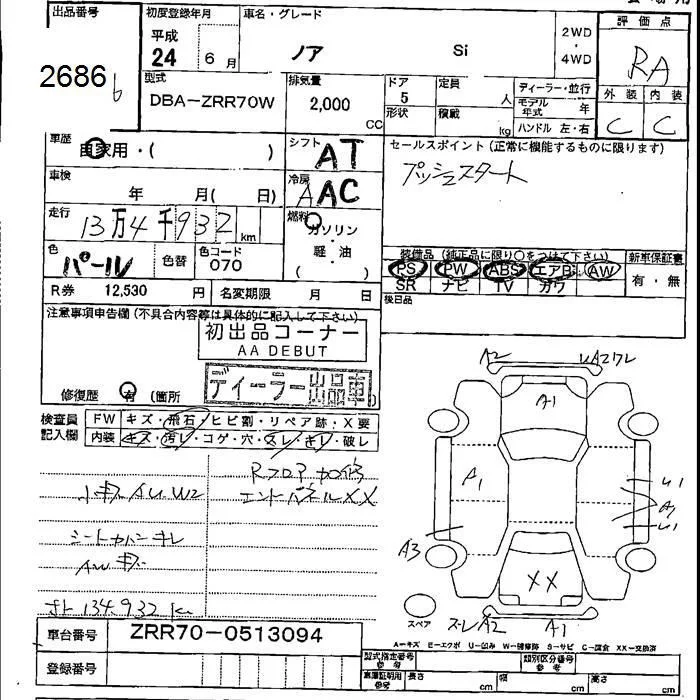 出品番号 初度登録年月 車名・グレード 評価点
平成
24 6月 ノア Si 2WD・4WD RA
2686
型式 排気量 ドア 定員 ディーラー・並行 外装 内装
DBA-ZRR70W 2,000 CC 5 人 モデル年式 年 C C
形状 積載 kg ハンドル 左・右
車歴 自家用・( ) シフト AT セールスポイント(正常に機能するものに限ります)
車検 年 月( 日) 冷房 AAC プッシュスタート
走行 13万4千932km 燃料 ガソリン・軽油 ( )
色 パール 色替 色コード 070 装備品(純正品に限り○をつけて下さい) 新車保証書
PS PW ABS エアB AW 有・無
SR ナビ TV カワ
R券 12,530 円 名変期限 月 日 後日品
注意事項申告欄(不具合内容等は具体的に記入して下さい)
初出品コーナー
AA DEBUT
ディーラー出品車
修復歴 有(箇所 )
検査員記入欄 FW キズ・飛石・ヒビ割・リペア跡・X要
内装 キズ・汚レ・コゲ・穴・スレ・キレ・破レ
Rフロア加修
小キズ AU W2 エンドパネルXX
シートカバーキレ
AWキズ
134,932 km
A2 UA2ワレ
A1
A1
A3
XX
スペア スレA2 A1
A-キズ E-エクボ U-凹み W-補修跡 S-サビ C-腐食 XX-交換済
車台番号 ZRR70-0513094
登録番号
型式指定番号 参考 類別区分番号 参考
車庫証明用 参考 長さ cm 幅 cm 高さ cm